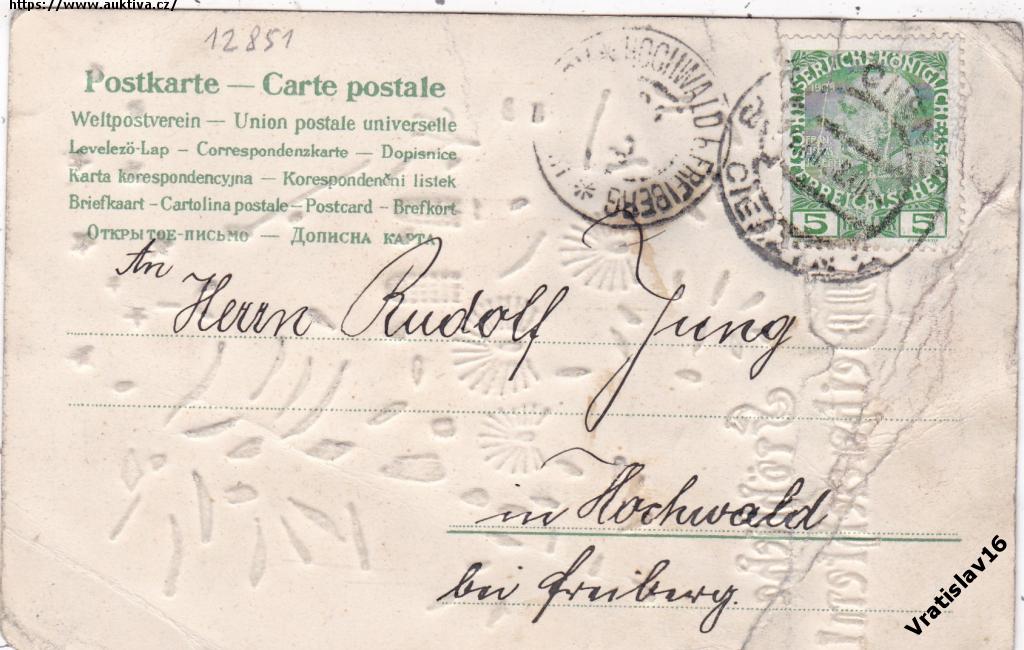 https://www.auktiva.cz/
12851
Postkarte — Carte postale
Weltpostverein — Union postale universelle
Levelező-Lap – Correspondenzkarte – Dopisnice
Karta korespondencyjna – Korespondenční listek
Briefkaart – Cartolina postale – Postcard – Brefkort
Открытое-письмо – Дописна карта
HOCHWALD b. FREIBERG *
5 5
An
Herrn Rudolf Jung
in Hochwald
bei Freiberg.
Vratislav16